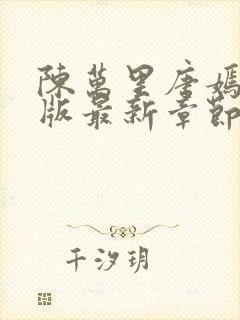 陳萬里唐嫣
版最新章節
千汐玥